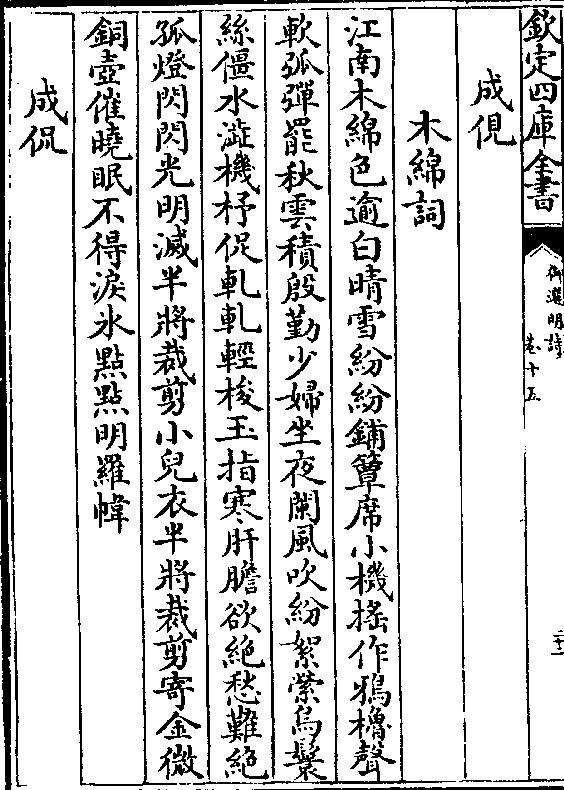 欽定四庫全書
御選明詩
卷十五
二十一
成俔
木綿詞
江南木綿色逾白晴雪紛紛鋪簟席小機搖作鴉櫓聲
軟弧彈罷秋雲積殷勤少婦坐夜闌風吹紛絮縈烏鬟
絲僵水澁機杼促軋軋輕梭玉指寒肝膽欲絕愁難絕
孤燈閃閃光明滅半將裁剪小兒衣半將裁剪寄金微
銅壺催曉眠不得淚氷點點明羅幃
成侃